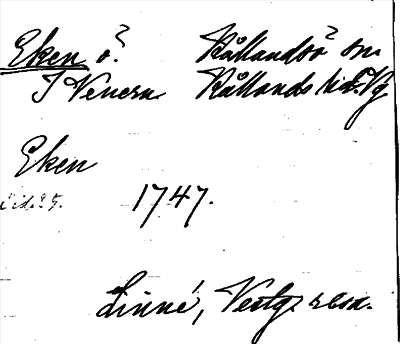 Eken ö? Kållandsö? sn.
I Venern Kållands hd. Vg
Eken
sid. 25.
1747.
Linné, Vestg. resa.